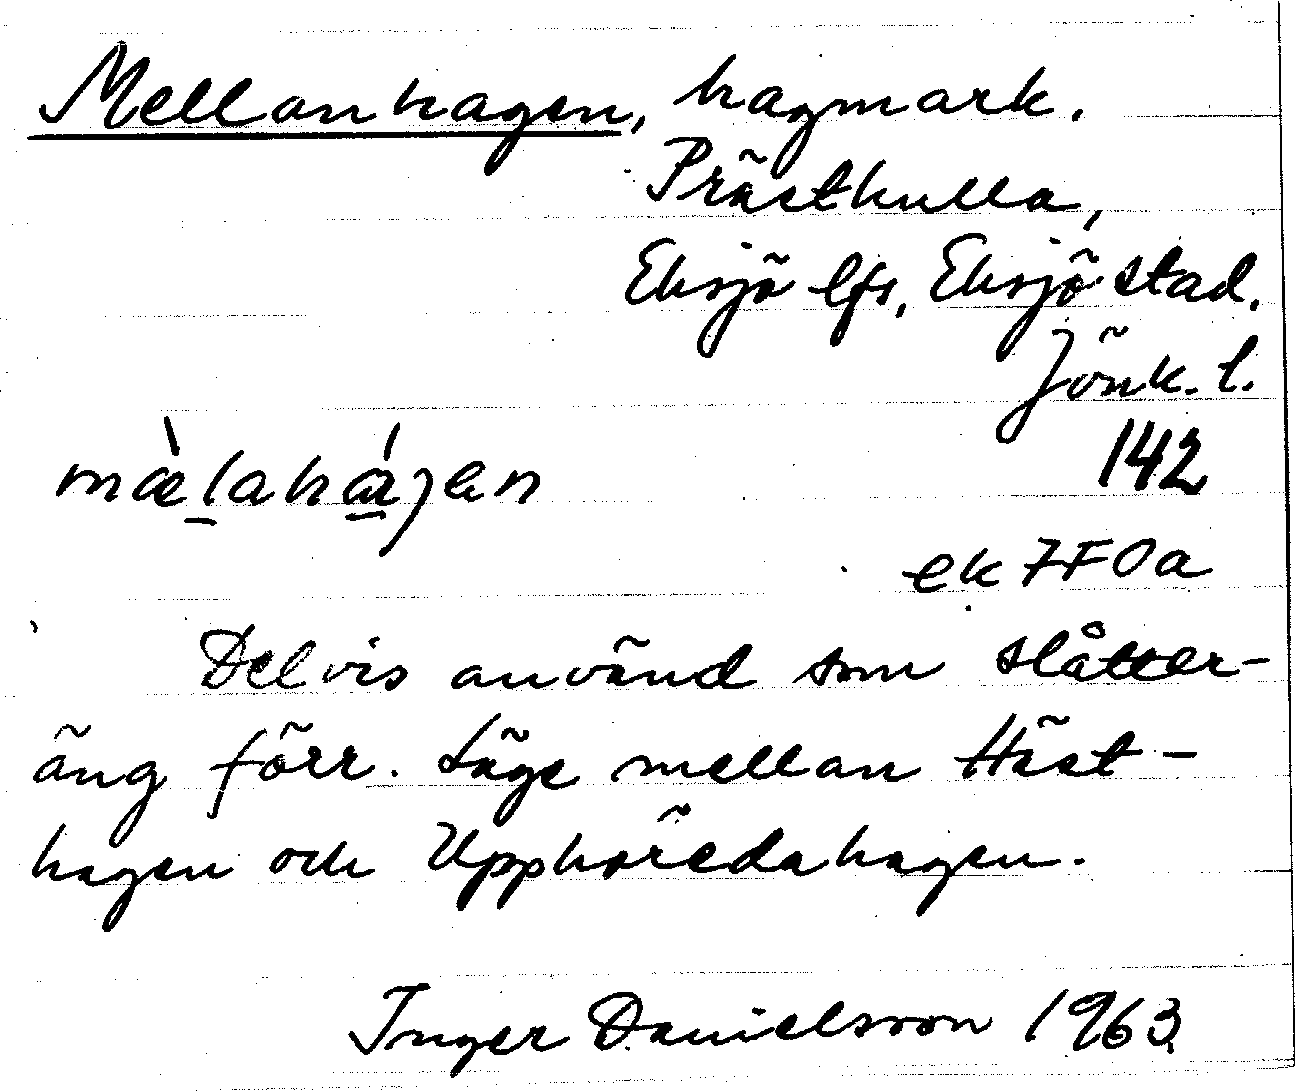 Mellanhagen, hagmark.
Prästkulla,
Eksjö lfs, Eksjö stad.
Jönk. l.
142
mæ̀lahá̱jen
ek 7F0a
Delvis använd som slåtter-
äng förr. Läge mellan Häst-
hagen och Upphöredahagen.
Inger Danielsson 1963